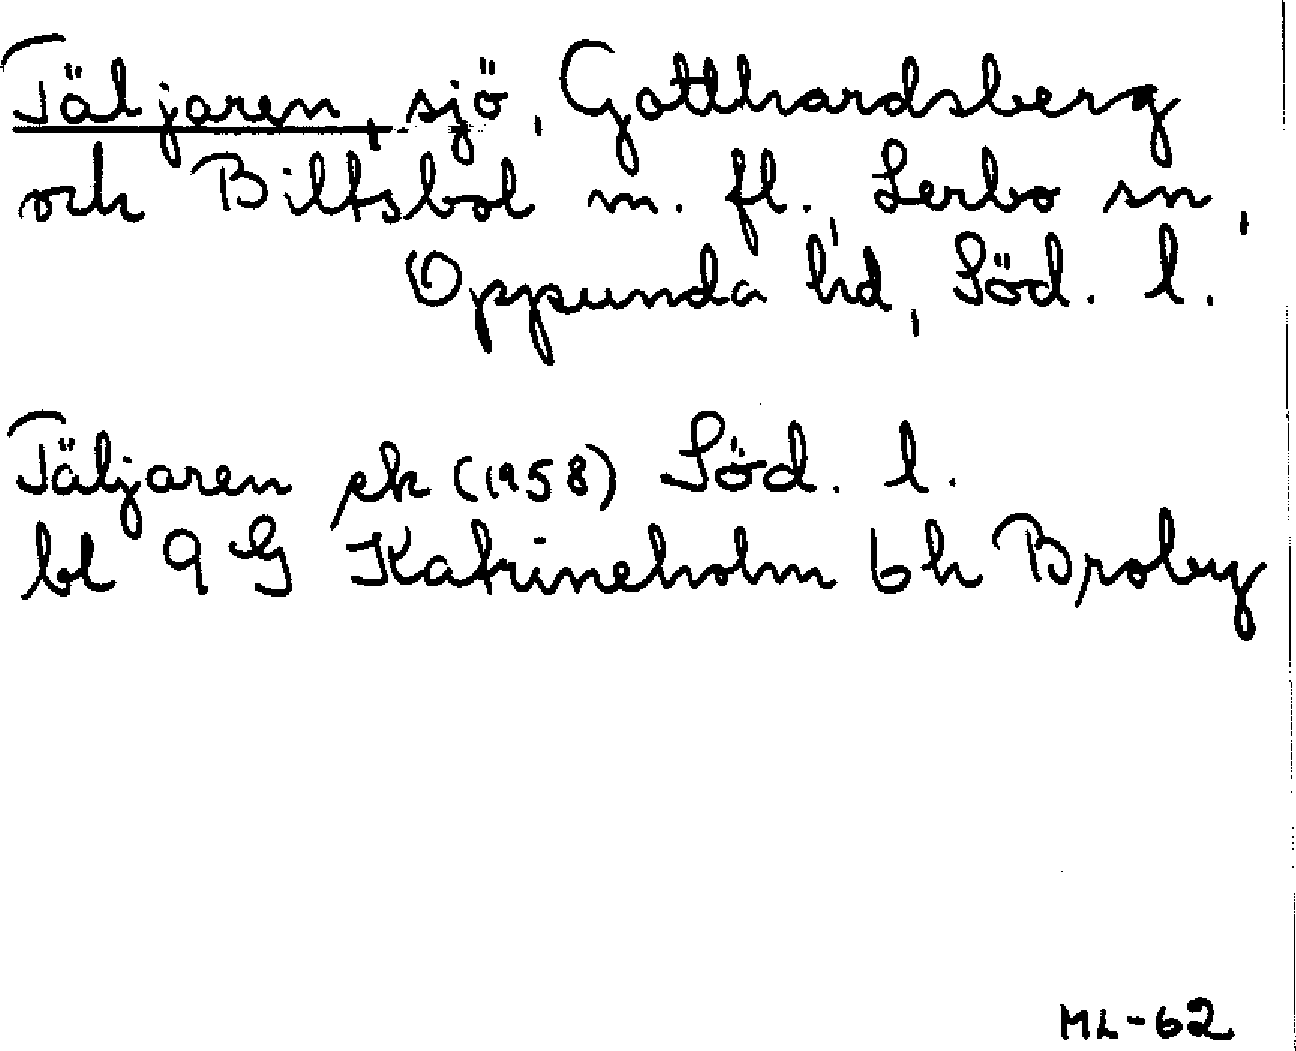 Täljaren, sjö, Gotthardsberg
och Biltsbol m. fl., Lerbo sn,
Oppunda hd, Söd. l.
Täljaren ek (1958) Söd. l.
bl 9 G Katrineholm bh Broby
ML-62